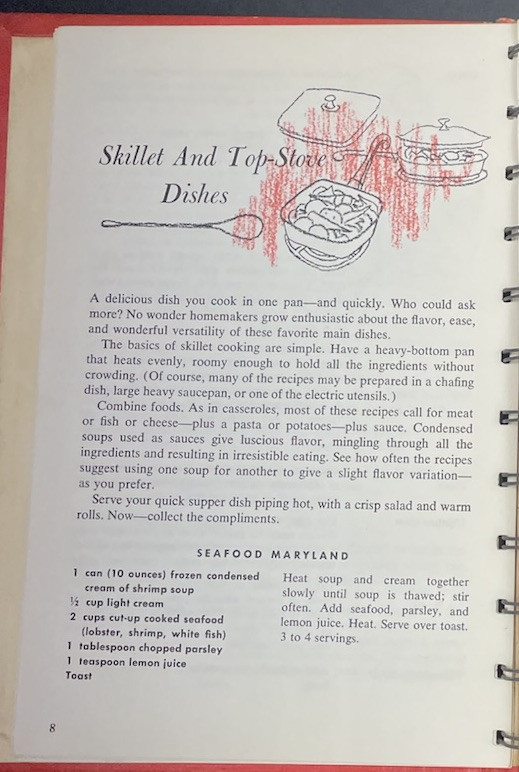 Skillet And Top-Stove
Dishes
A delicious dish you cook in one pan—and quickly. Who could ask
more? No wonder homemakers grow enthusiastic about the flavor, ease,
and wonderful versatility of these favorite main dishes.
The basics of skillet cooking are simple. Have a heavy-bottom pan
that heats evenly, roomy enough to hold all the ingredients without
crowding. (Of course, many of the recipes may be prepared in a chafing
dish, large heavy saucepan, or one of the electric utensils.)
Combine foods. As in casseroles, most of these recipes call for meat
or fish or cheese—plus a pasta or potatoes—plus sauce. Condensed
soups used as sauces give luscious flavor, mingling through all the
ingredients and resulting in irresistible eating. See how often the recipes
suggest using one soup for another to give a slight flavor variation—
as you prefer.
Serve your quick supper dish piping hot, with a crisp salad and warm
rolls. Now—collect the compliments.
SEAFOOD MARYLAND
1 can (10 ounces) frozen condensed
cream of shrimp soup
½ cup light cream
2 cups cut-up cooked seafood
(lobster, shrimp, white fish)
1 tablespoon chopped parsley
1 teaspoon lemon juice
Toast
Heat soup and cream together
slowly until soup is thawed; stir
often. Add seafood, parsley, and
lemon juice. Heat. Serve over toast.
3 to 4 servings.
8